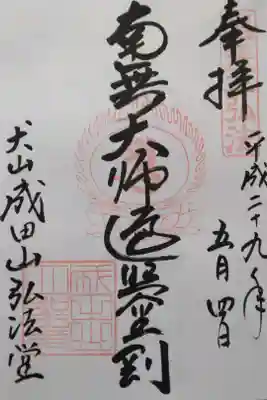 奉拝
平成二十九年
五月四日
南無大師遍照金剛
犬山成田山弘法堂